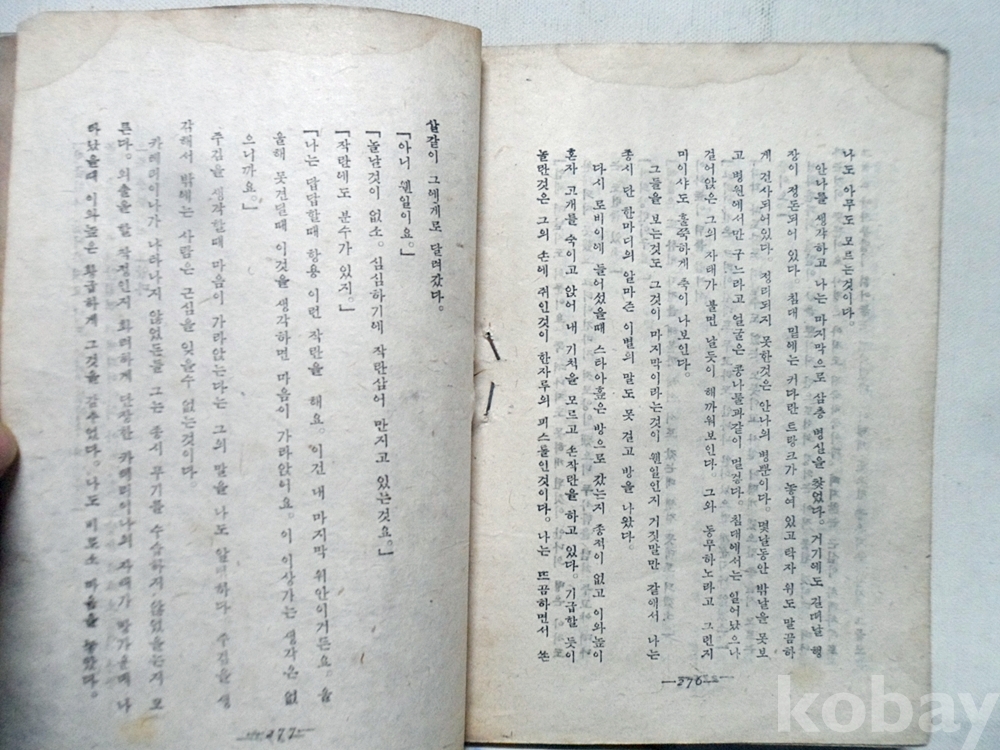 나도 아무도 모르는것이다.
안나를 생각하고 나는 마지막으로 삼층 병실을 찾었다. 거기에도 길떠날 행
장이 정돈되어 있다. 침대 밑에는 커다란 트렁크가 놓여 있고 탁자 위도 말끔하
게 건사되어있다 정리되지 못한것은 안나의 병뿐이다. 몇날동안 밖날을 못보
고 병원에서만 구느라고 얼굴은 콩나물과같이 멀겋다. 침대에서는 일어났으나
걸어앉은 그의 자태가 불면 날듯이 해까워보인다. 그와 동무하노라고 그런지
미이샤도 홀쭉하게 축이 나보인다.
그들을 보는것도 그것이 마지막이라는것이 웬일인지 거짓말만 같애서 나는
종시 단 한마디의 알마즌 이별의 말도 못 건고 방을 나왔다.
다시 로비이에 들어섰을때 스타아홀은 방으로 갔는지 종적이 없고 이와높이
혼자 고개를 숙이고 앉어 내 기척을 모르고 손작란을 하고 있다. 기급할 듯이
놀란것은 그의 손에 쥐인것이 한자루의 피스톨인것이다. 나는 뜨끔하면서 쏜
—276—
살같이 그에게로 달려갔다.
「아니 웬일이요.」
「놀날것이 없소. 심심하기에 작란삼어 만지고 있는것요.」
「작란에도 분수가 있지.」
「나는 답답할때 항용 이런 작란을 해요. 이건 내 마지막 위안이거든요. 울
울해 못견딜때 이것을 생각하면 마음이 가라앉어요. 이 이상가는 생각은 없
으니까요.」
주검을 생각할때 마음이 가라앉는다는 그의 말을 나도 알 하다 주검을 생
각해서 밖에는 사람은 근심을 잊을수 없는것이다
카테리이나가 나타나지 않었든들 그는 종시 무기를 수습하지 않었을는지 모
른다. 외출을 할 작정인지 화려하게 단장한 카테리이나의 자태가 방가운데 나
타났을때 이와높은 황급하게 그것을 감추었다. 나도 비로소 마음을 놓았다.
—277—
kobay